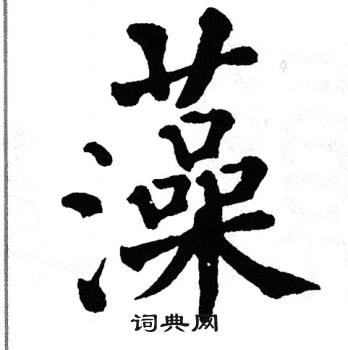 藻
词典网